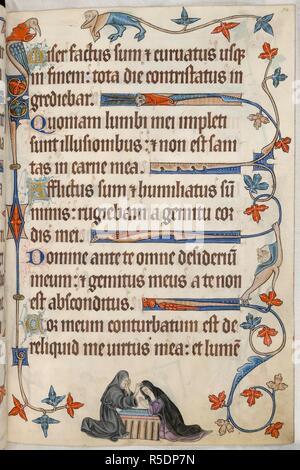 miser factus sum ⁊ curuatus usq;
in finem: tota die contristatus in
grediebar.
Quoniam lumbi mei impleti
sunt illusionibus: ⁊ non est sani
tas in carne mea.
Afflictus sum ⁊ humiliatus sū
nimis: rugiebam a gemitu cor
dis mei.
Domine ante te omne desideriū
meum: ⁊ gemitus meus a te non
est absconditus.
Cor meum conturbatum est de
reliquid me uirtus mea: et lumē
alamy
Image ID: R5DP7N
www.alamy.com